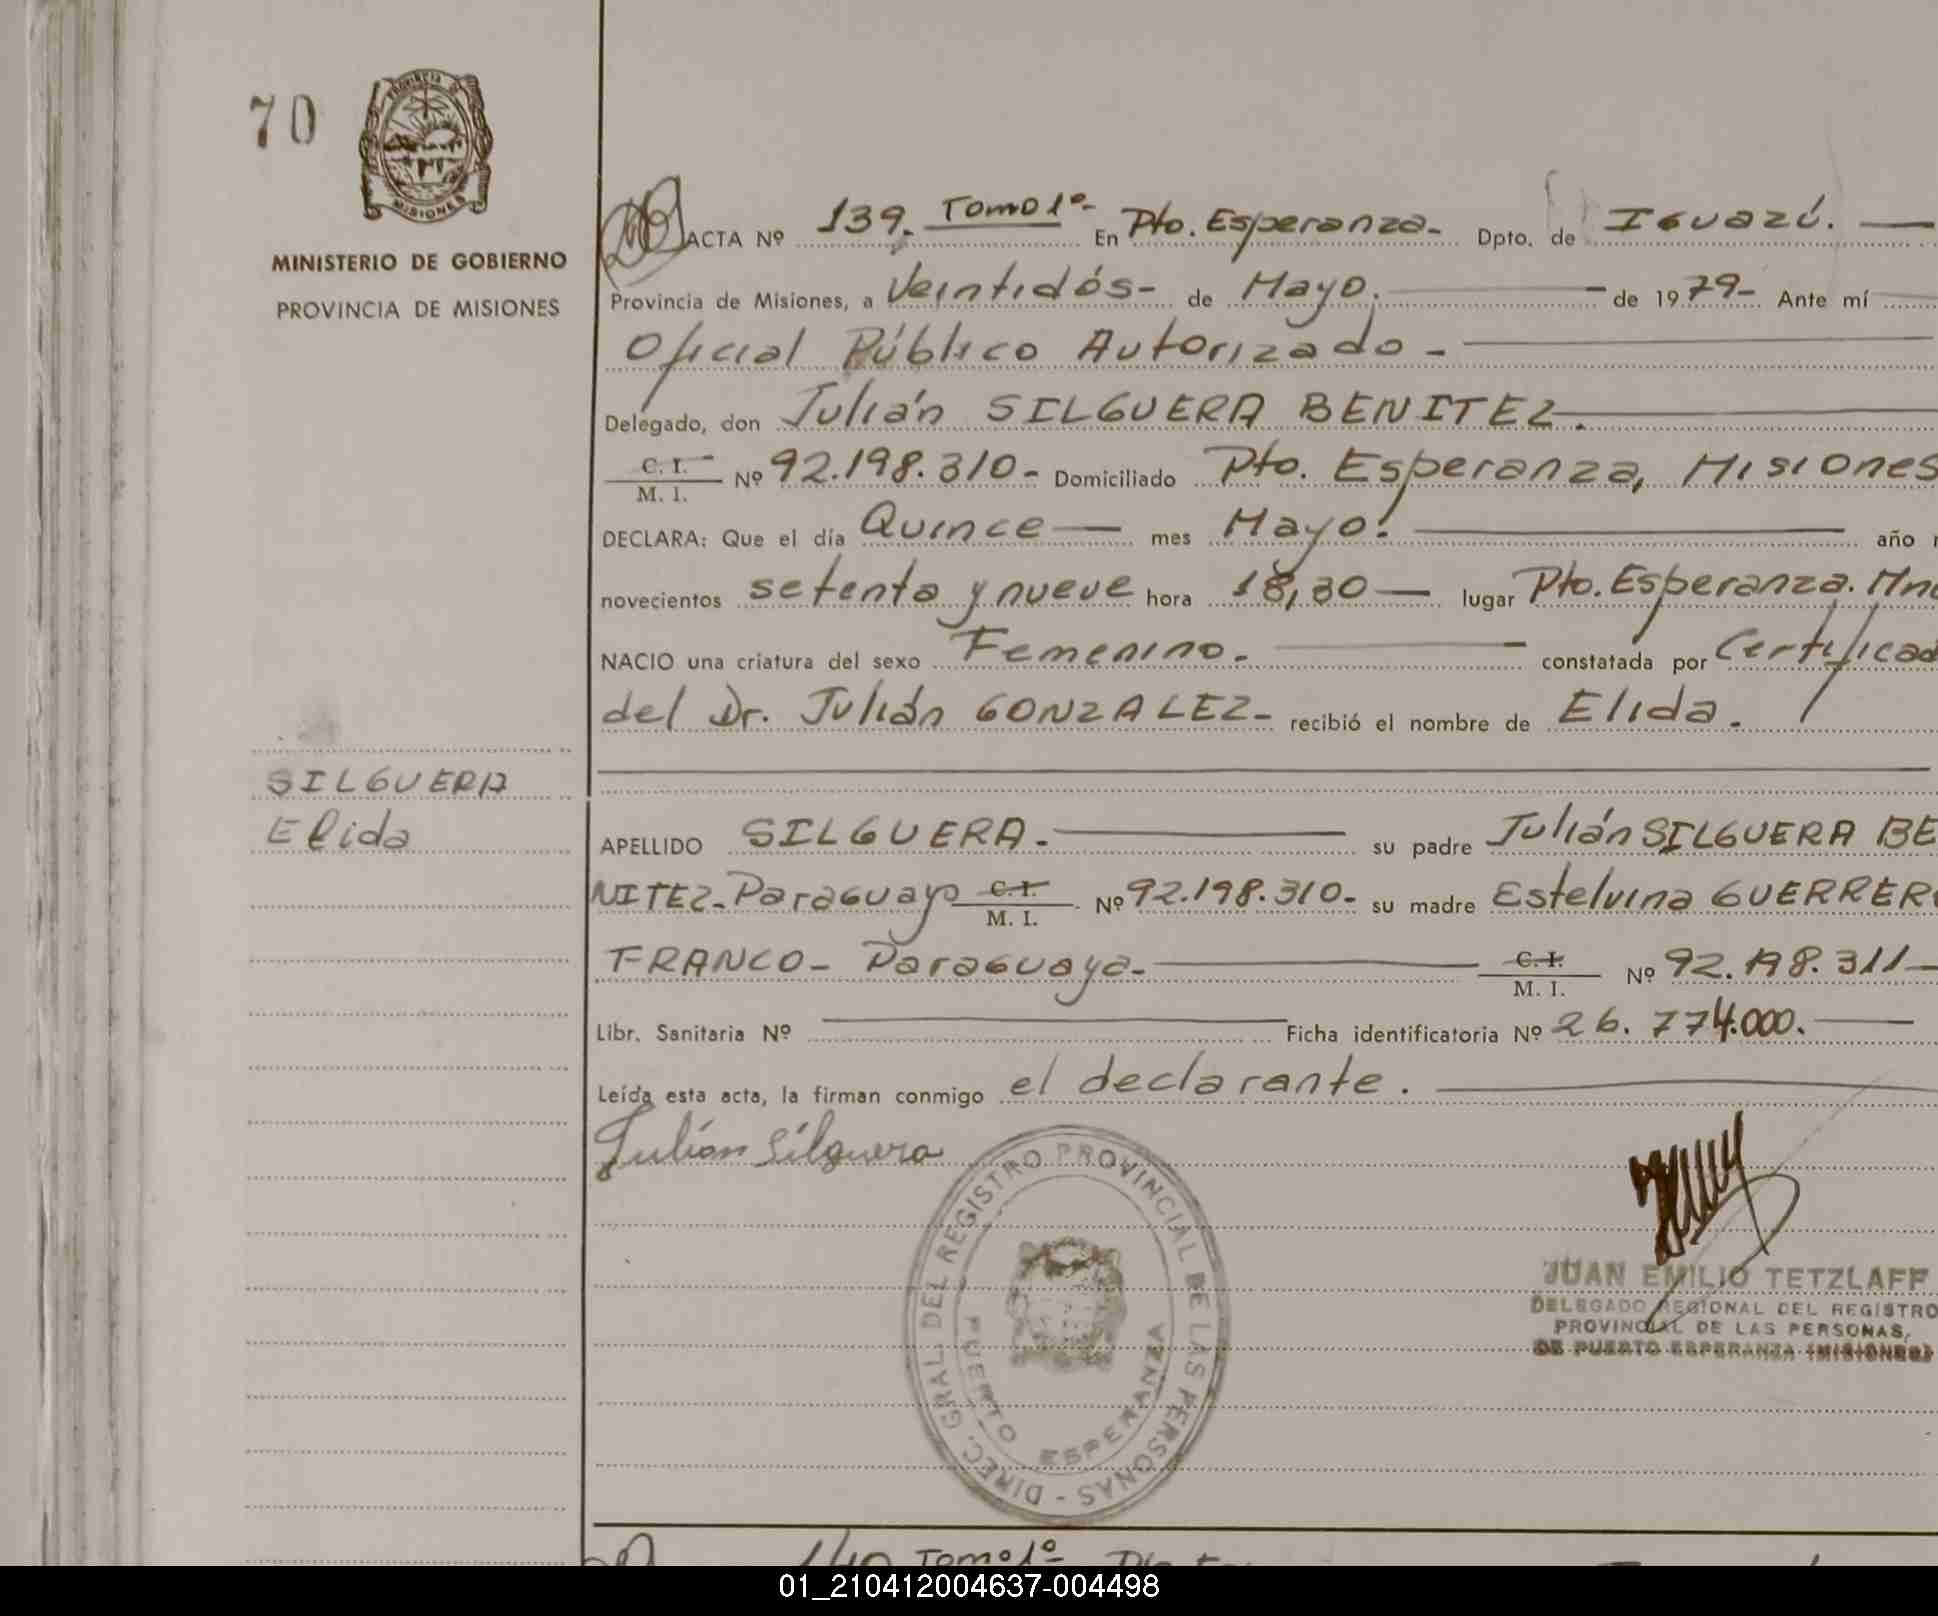 70
PROVINCIA DE
MISIONES
MINISTERIO DE GOBIERNO
PROVINCIA DE MISIONES
ACTA Nº 139. Tomo 1º- En Pto. Esperanza- Dpto. de Iguazú. —
Provincia de Misiones, a Veintidós- de Mayo. — de 1979- Ante mí
Oficial Público Autorizado -
Delegado, don Julián SILGUERA BENITEZ.
C. I. / M. I. Nº 92.198.310- Domiciliado Pto. Esperanza, Misiones
DECLARA: Que el día Quince — mes Mayo. — año
novecientos setenta y nueve hora 18,30 — lugar Pto. Esperanza. Mnes
NACIO una criatura del sexo Femenino. — constatada por Certificad
del Dr. Julián GONZALEZ- recibió el nombre de Elida.
SILGUERA
Elida
APELLIDO SILGUERA. — su padre Julián SILGUERA BE
NITEZ- Paraguayo C. I. / M. I. Nº 92.198.310- su madre Estelvina GUERRERO
FRANCO- Paraguaya- — C. I. / M. I. Nº 92.198.311—
Libr. Sanitaria Nº — Ficha identificatoria Nº 26.774.000. —
Leída esta acta, la firman conmigo el declarante. —
Julián Silguera
DIREC. GRAL. DEL REGISTRO PROVINCIAL DE LAS PERSONAS -
PUERTO ESPERANZA
JUAN EMILIO TETZLAFF
DELEGADO REGIONAL DEL REGISTRO
PROVINCIAL DE LAS PERSONAS,
DE PUERTO ESPERANZA (MISIONES)
140 Tomo 1º
01_210412004637-004498